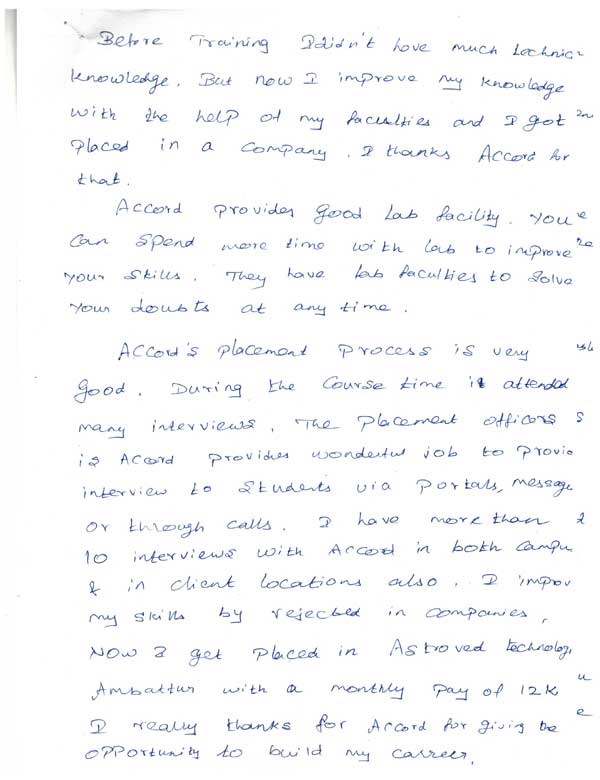 Before Training I didn't have much technic
knowledge. But now I improve my knowledge
with the help of my faculties and I got
placed in a company. I thanks Accord for
that.
Accord provides good lab facility. You
can spend more time with lab to improve
your skills. They have lab faculties to solve
your doubts at any time.
Accord's placement process is very
good. During the course time I attended
many interviews. The placement officers
is Accord provides wonderful job to provid
interview to students via portals, message
or through calls. I have more than
10 interviews with Accord in both campu
& in client locations also. I improv
my skills by rejected in companies.
Now I get placed in Astroved technology
Ambattur with a monthly pay of 12K
I really thanks for Accord for giving the
opportunity to build my carreer.